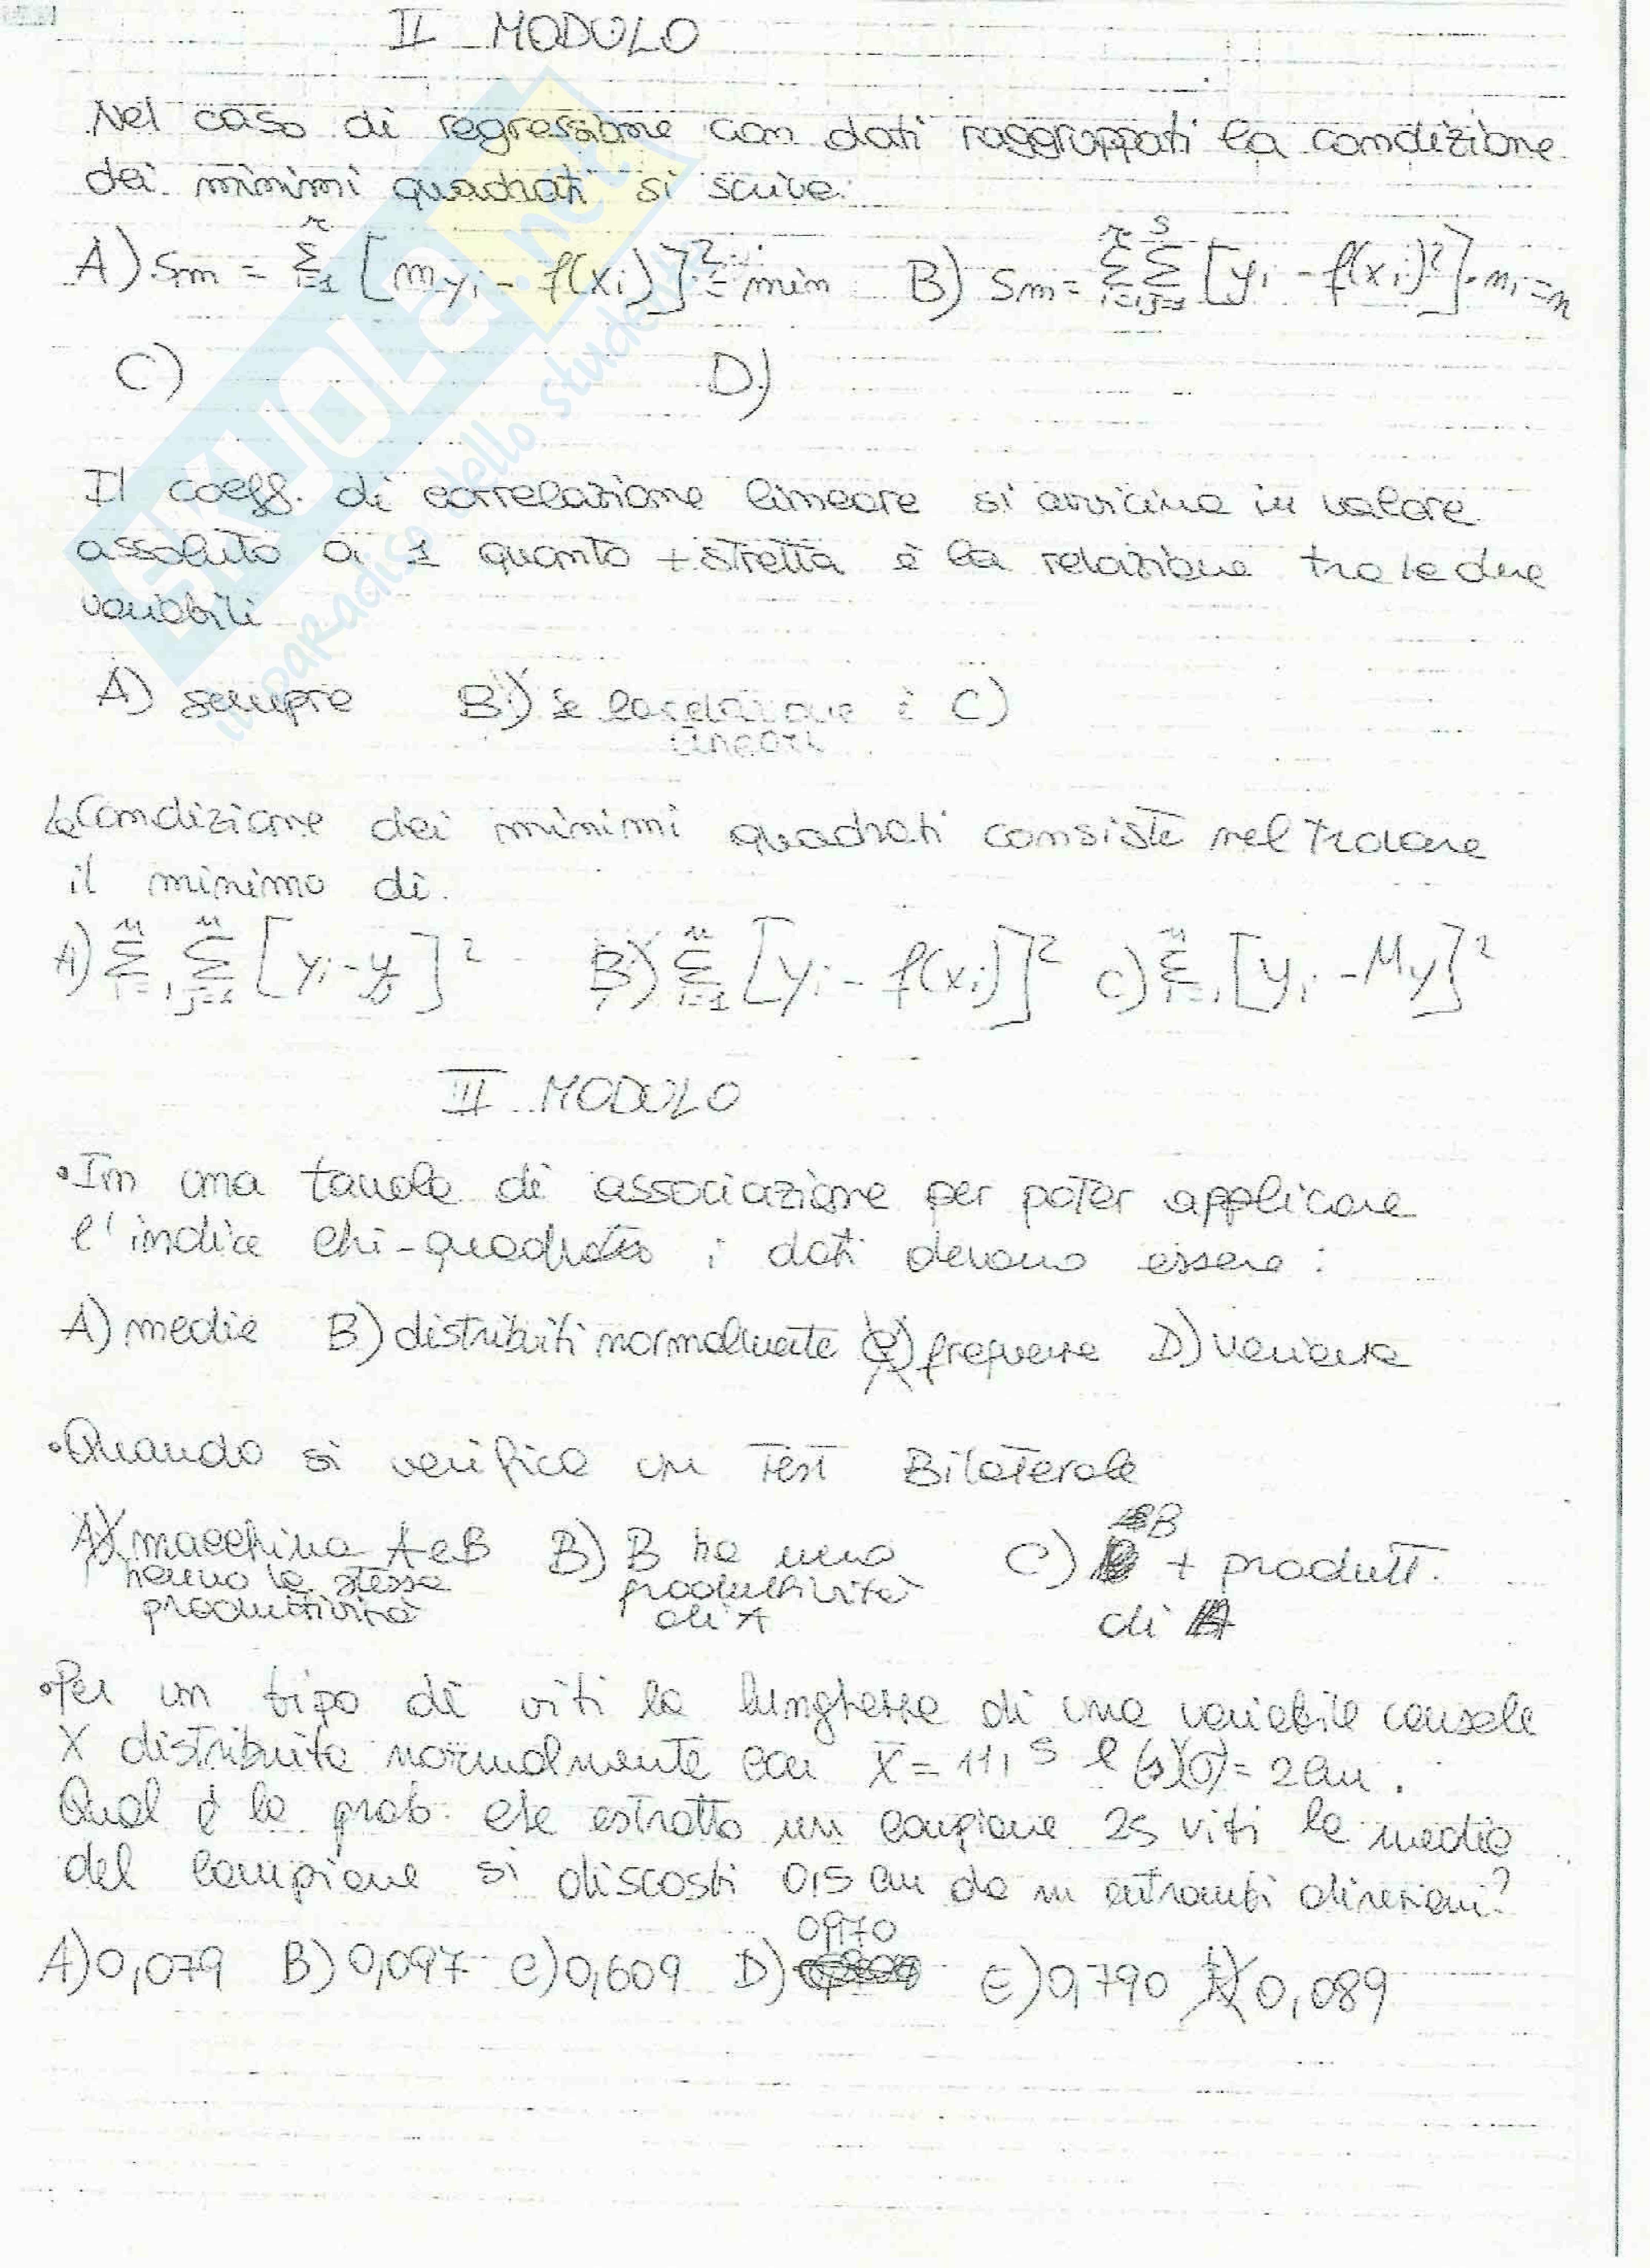 II MODULO
Nel caso di regressione con dati raggruppati la condizione
dei minimi quadrati si scrive:
A) Sm = Σ i=1 r [m yi - f(xi)]² = min B) Sm = Σ i=1 r Σ j=1 s [yi - f(xi)²] · ni = n
C) D)
Il coeff. di correlazione lineare si avvicina in valore
assoluto a 1 quanto + stretta è la relazione tra le due
variabili
A) sempre B) se la relazione è C)
lineare
La Condizione dei minimi quadrati consiste nel trovare
il minimo di
A) Σ i=1 n Σ j=1 n [yi - yj]² B) Σ i=1 n [yi - f(xi)]² C) Σ i=1 n [yi - My]²
III MODULO
• In una tavola di associazione per poter applicare
l'indice chi-quadrato i dati devono essere:
A) medie B) distribuiti normalmente C) frequenze D) varianze
• Quando si verifica un Test Bilaterale
A) macchina A e B B) B ha una C) B + produtt.
hanno la stessa produttività di A
produttività di A
• Per un tipo di viti la lunghezza di una variabile casuale
X distribuita normalmente con x̄ = 11,5 e (s)(σ) = 2 cm.
Qual è la prob. che estratto un campione 25 viti la media
del campione si discosti 0,5 cm da m entrambi direzioni?
A) 0,079 B) 0,097 C) 0,609 D) 0,970 E) 0,790 0,089
EKUOLA.net
il paradiso dello studente